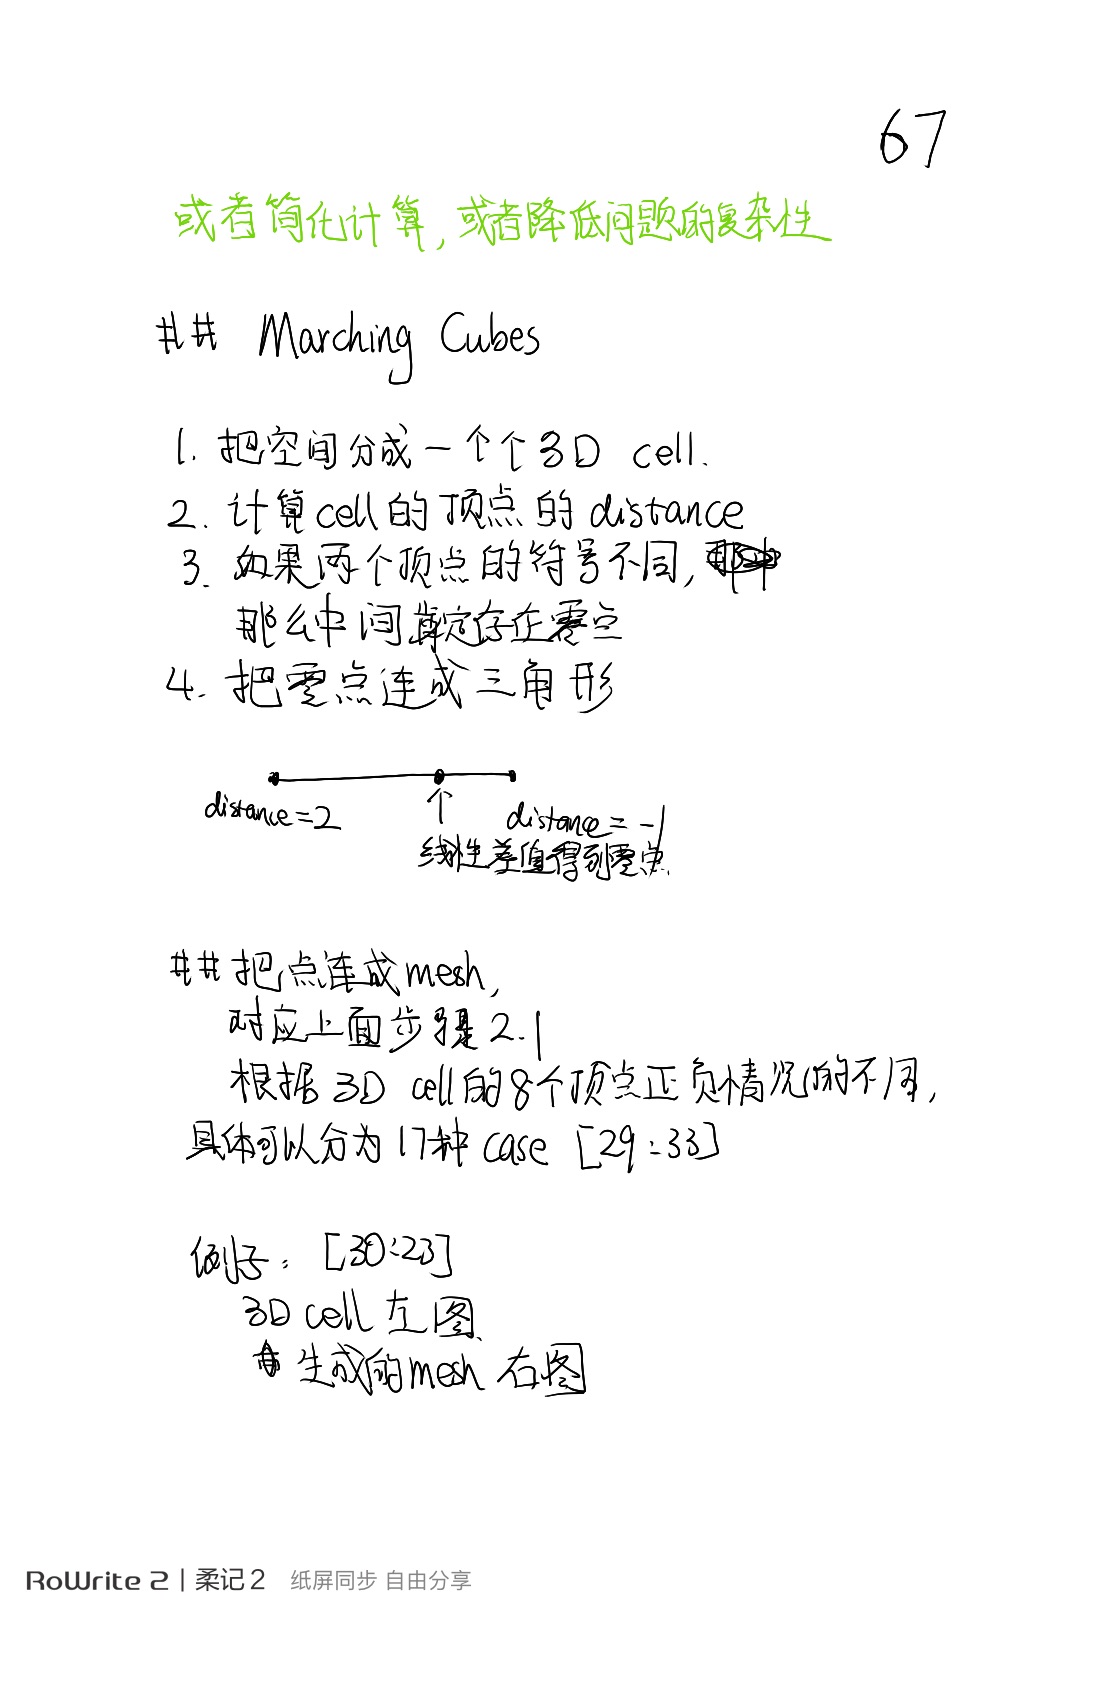 67
或者简化计算,或者降低问题的复杂性
## Marching Cubes
1. 把空间分成一个个3D cell.
2. 计算cell的顶点的distance
3. 如果两个顶点的符号不同,
那么中间肯定存在零点
4. 把零点连成三角形
distance=2
↑
distance=-1
线性差值得到零点.
## 把点连成mesh,
对应上面步骤2.1
根据3D cell的8个顶点正负情况的不同,
具体可以分为17种case [29:33]
例子: [30:23]
3D cell 左图
生成的mesh 右图
RoWrite 2 | 柔记2 纸屏同步 自由分享